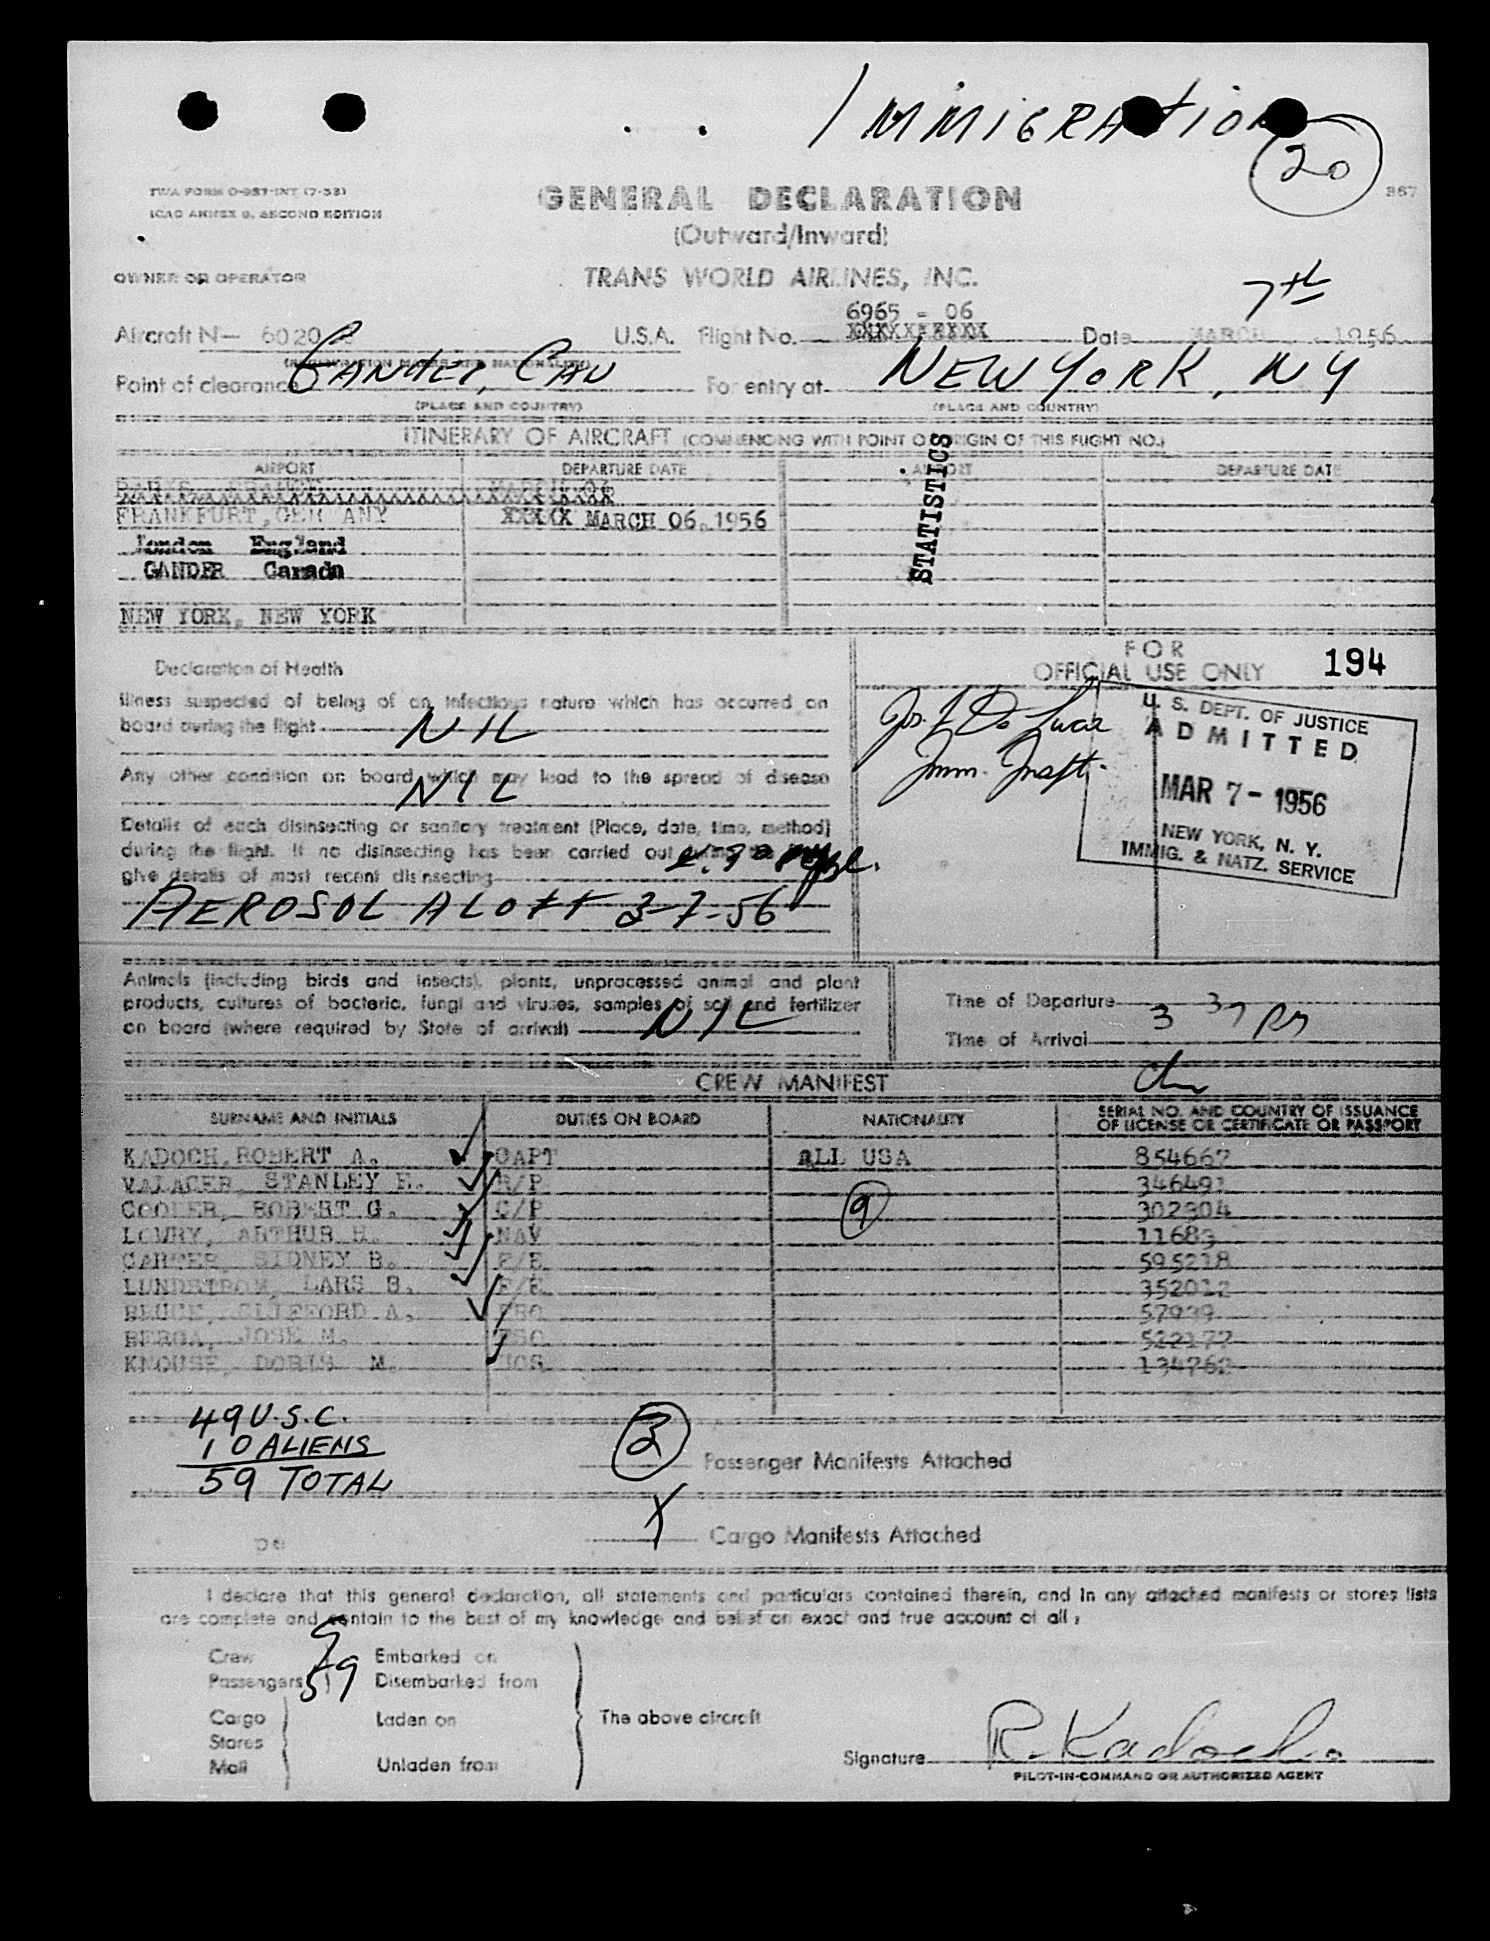 IMMIGRATION
20
TWA FORM O-957-INT (7-53)
ICAO ANNEX 9, SECOND EDITION
GENERAL DECLARATION
367
(Outward/Inward)
OWNER OR OPERATOR
TRANS WORLD AIRLINES, INC.
7th
6965 - 06
Aircraft N— 6020 U.S.A. Flight No. XXXXXXXXXX Date MARCH 1956
(REGISTRATION MARKS AND NATIONALITY)
Point of clearance GANDER, CAN For entry at NEW YORK, NY
(PLACE AND COUNTRY) (PLACE AND COUNTRY)
ITINERARY OF AIRCRAFT (COMMENCING WITH POINT OF ORIGIN OF THIS FLIGHT NO.)
AIRPORT DEPARTURE DATE AIRPORT DEPARTURE DATE
FRANKFURT, GERMANY XXXXX MARCH 06, 1956
London England
GANDER Canada
NEW YORK, NEW YORK
STATISTICS
Declaration of Health
Illness suspected of being of an infectious nature which has occurred on
board during the flight NIL
Any other condition on board which may lead to the spread of disease
NIL
Details of each disinsecting or sanitary treatment (Place, date, time, method)
during the flight. If no disinsecting has been carried out during the flight
give details of most recent disinsecting
AEROSOL ALOFT 3-7-56
FOR
OFFICIAL USE ONLY 194
Jos. F. De Luca
Imm. Inspt.
U. S. DEPT. OF JUSTICE
ADMITTED
MAR 7 - 1956
NEW YORK, N. Y.
IMMIG. & NATZ. SERVICE
Animals (including birds and insects), plants, unprocessed animal and plant
products, cultures of bacteria, fungi and viruses, samples of soil and fertilizer
on board (where required by State of arrival) NIL
Time of Departure
Time of Arrival 3 37 PM
CREW MANIFEST
SURNAME AND INITIALS DUTIES ON BOARD NATIONALITY SERIAL NO. AND COUNTRY OF ISSUANCE
OF LICENSE OR CERTIFICATE OR PASSPORT
KADOCH, ROBERT A. CAPT ALL USA 854667
STANLEY E. R/P 346491
COOLER, ROBERT G. C/P 9 302304
LOWRY, ARTHUR H. NAV 11689
CARTER, SIDNEY B. F/E 595218
LUNDSTROM, LARS S. F/E 352012
BRUCE, CLIFFORD A. 57939
BERGA, JOSE M. 522177
KNOUSE, DORIS M. HOS 134762
49 U.S.C.
10 ALIENS
59 TOTAL
3 Passenger Manifests Attached
X Cargo Manifests Attached
I declare that this general declaration, all statements and particulars contained therein, and in any attached manifests or stores lists
are complete and contain to the best of my knowledge and belief an exact and true account of all:
Crew 9 Embarked on
Passengers 59 Disembarked from
Cargo Laden on The above aircraft
Stores
Mail Unladen from
Signature R. Kadoch
PILOT-IN-COMMAND OR AUTHORIZED AGENT